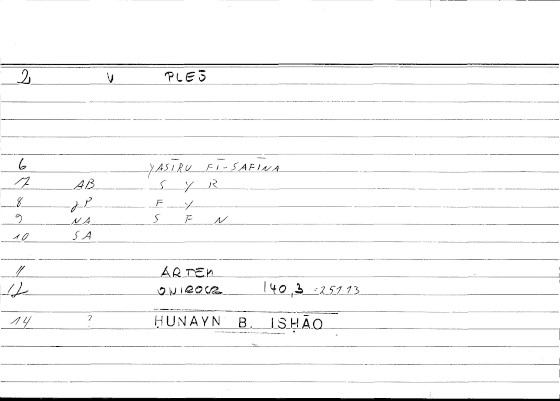 2 V PLEŠ
6 YASĪRU FĪ-SAFĪNA
7 AB S Y R
8 JP F Y
9 NA S F N
10 SA
11 ARTEM
12 ONIROCR 140,3 :251 13
14 ? ḤUNAYN B. ISḤĀQ